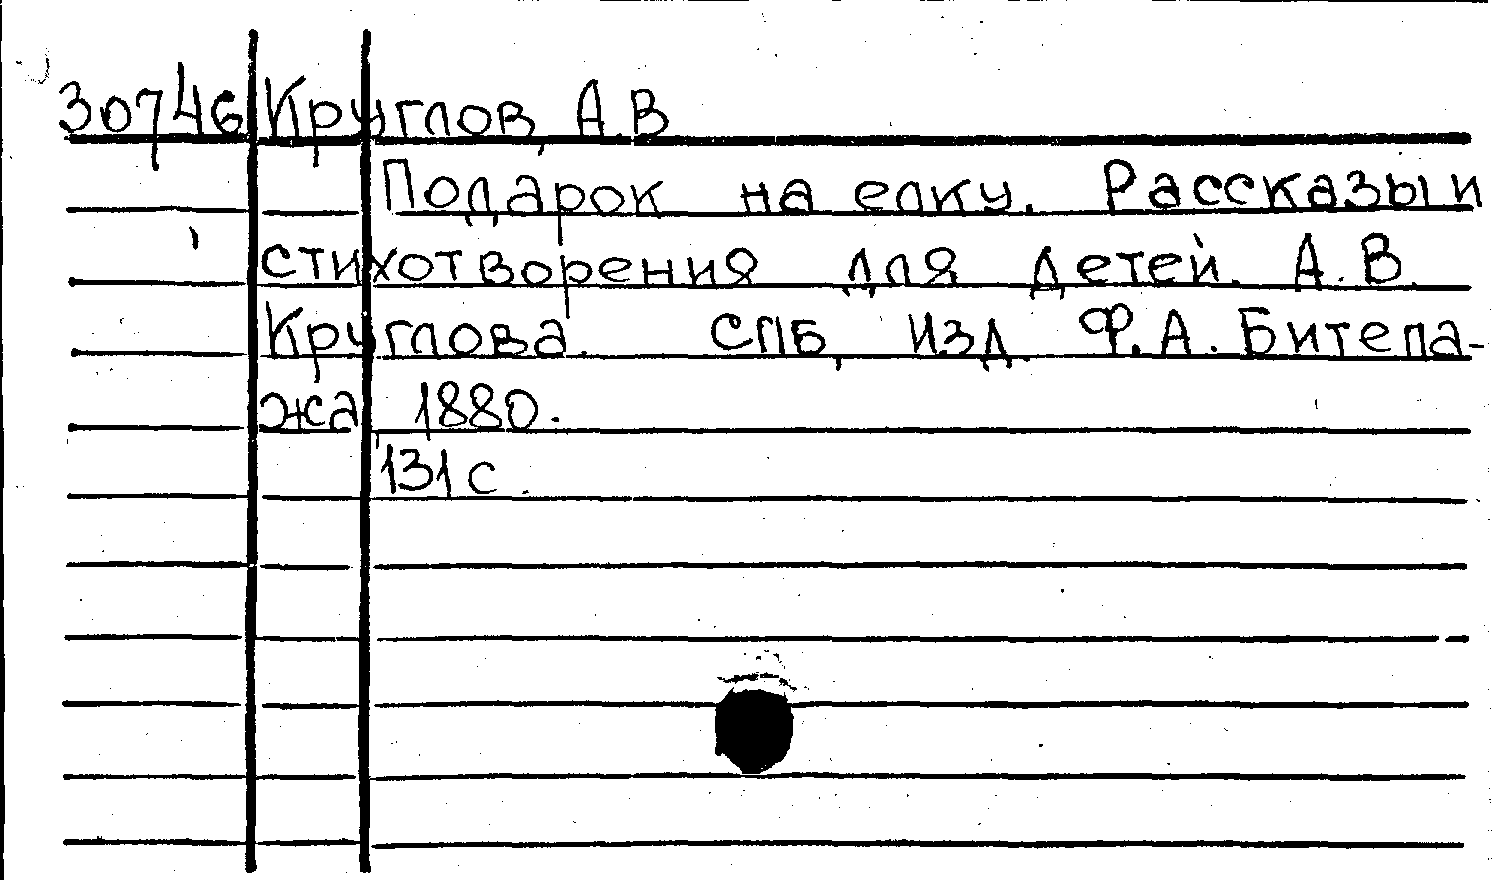 30746 Круглов, А.В
Подарок на елку. Рассказы и
стихотворения для детей. А.В.
Круглова. СПБ, изд. Ф.А. Битепа-
жа 1880.
131 с.